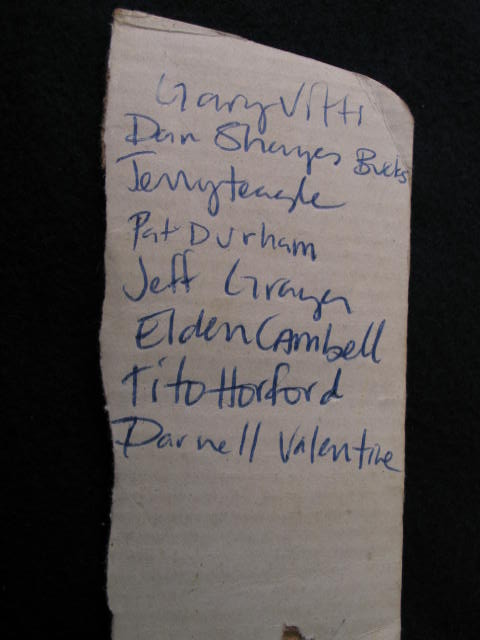 Gary Vitti
Dan Shayes Bucks
Terry teagle
Pat Durham
Jeff Grayer
Elden CAmbell
Tito Horford
Darnell Valentine